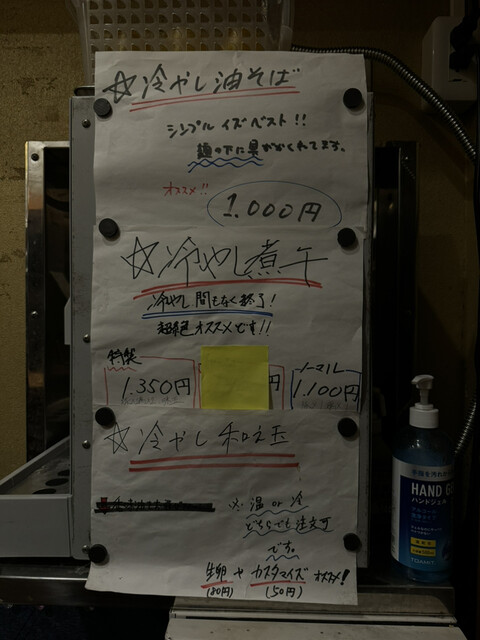 ☆冷やし油そば
シンプルイズベスト!!
麺の下に具がかくれてます。
オススメ!!
1.000円
☆冷やし煮干
冷やし間もなく終了!
超絶オススメです!!
特製
1.350円
円
ノーマル
1.100円
☆冷やし和え玉
※温or冷
どちらでも注文可
です。
生卵やカスタマイズオススメ!
(80円) (50円)
手指を汚れから
HAND G
ハンドジェル